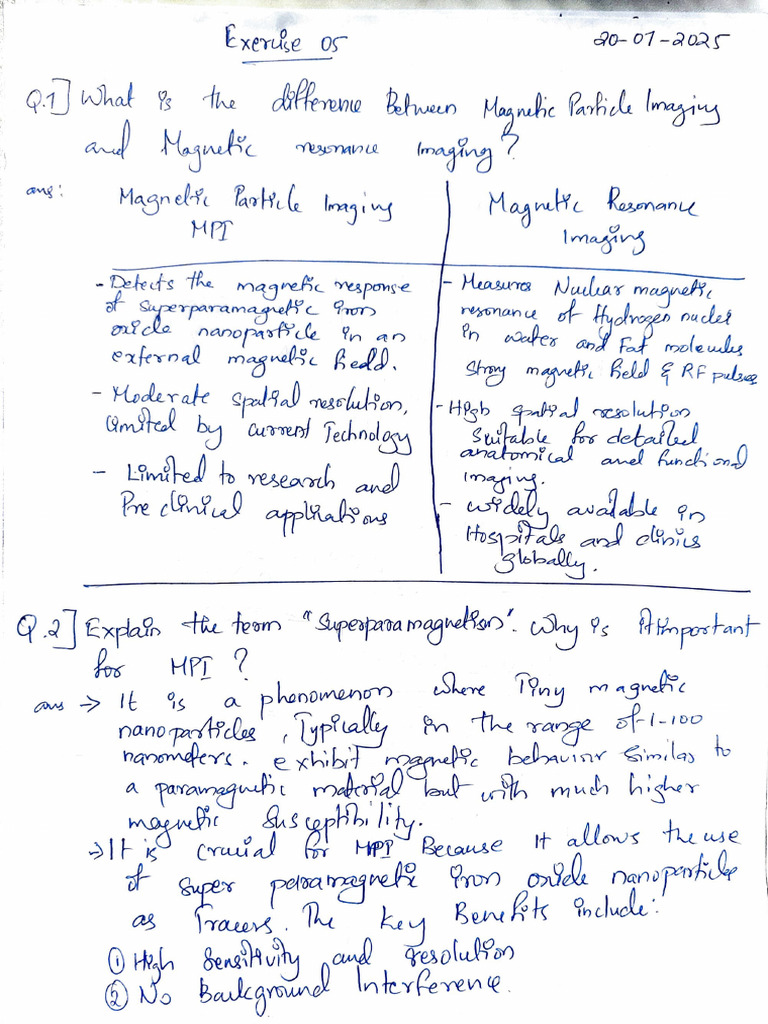 Exercise 05
20-01-2025
Q.1] What is the difference Between Magnetic Particle Imaging
and Magnetic resonance Imaging?
ans:
Magnetic Particle Imaging
MPI
- Detects the magnetic response
of superparamagnetic iron
oxide nanoparticle in an
external magnetic field.
- Moderate spatial resolution,
limited by current Technology
- Limited to research and
Pre clinical applications
Magnetic Resonance
Imaging
- Measures Nuclear magnetic
resonance of Hydrogen nuclei
in water and Fat molecules
strong magnetic field & RF pulses
- High spatial resolution
Suitable for detailed
anatomical and functional
Imaging.
- widely available in
Hospitals and clinics
globally.
Q.2] Explain the term "Superparamagnetism". Why is It important
for MPI?
ans → It is a phenomenon where Tiny magnetic
nanoparticles, Typically in the range of 1-100
nanometers. exhibit magnetic behaviour similar to
a paramagnetic material but with much higher
magnetic Susceptibility.
→ It is crucial for MPI Because It allows the use
of super paramagnetic iron oxide nanoparticle
as Tracers. The key Benefits include:
① High Sensitivity and resolution
② No Background Interference.